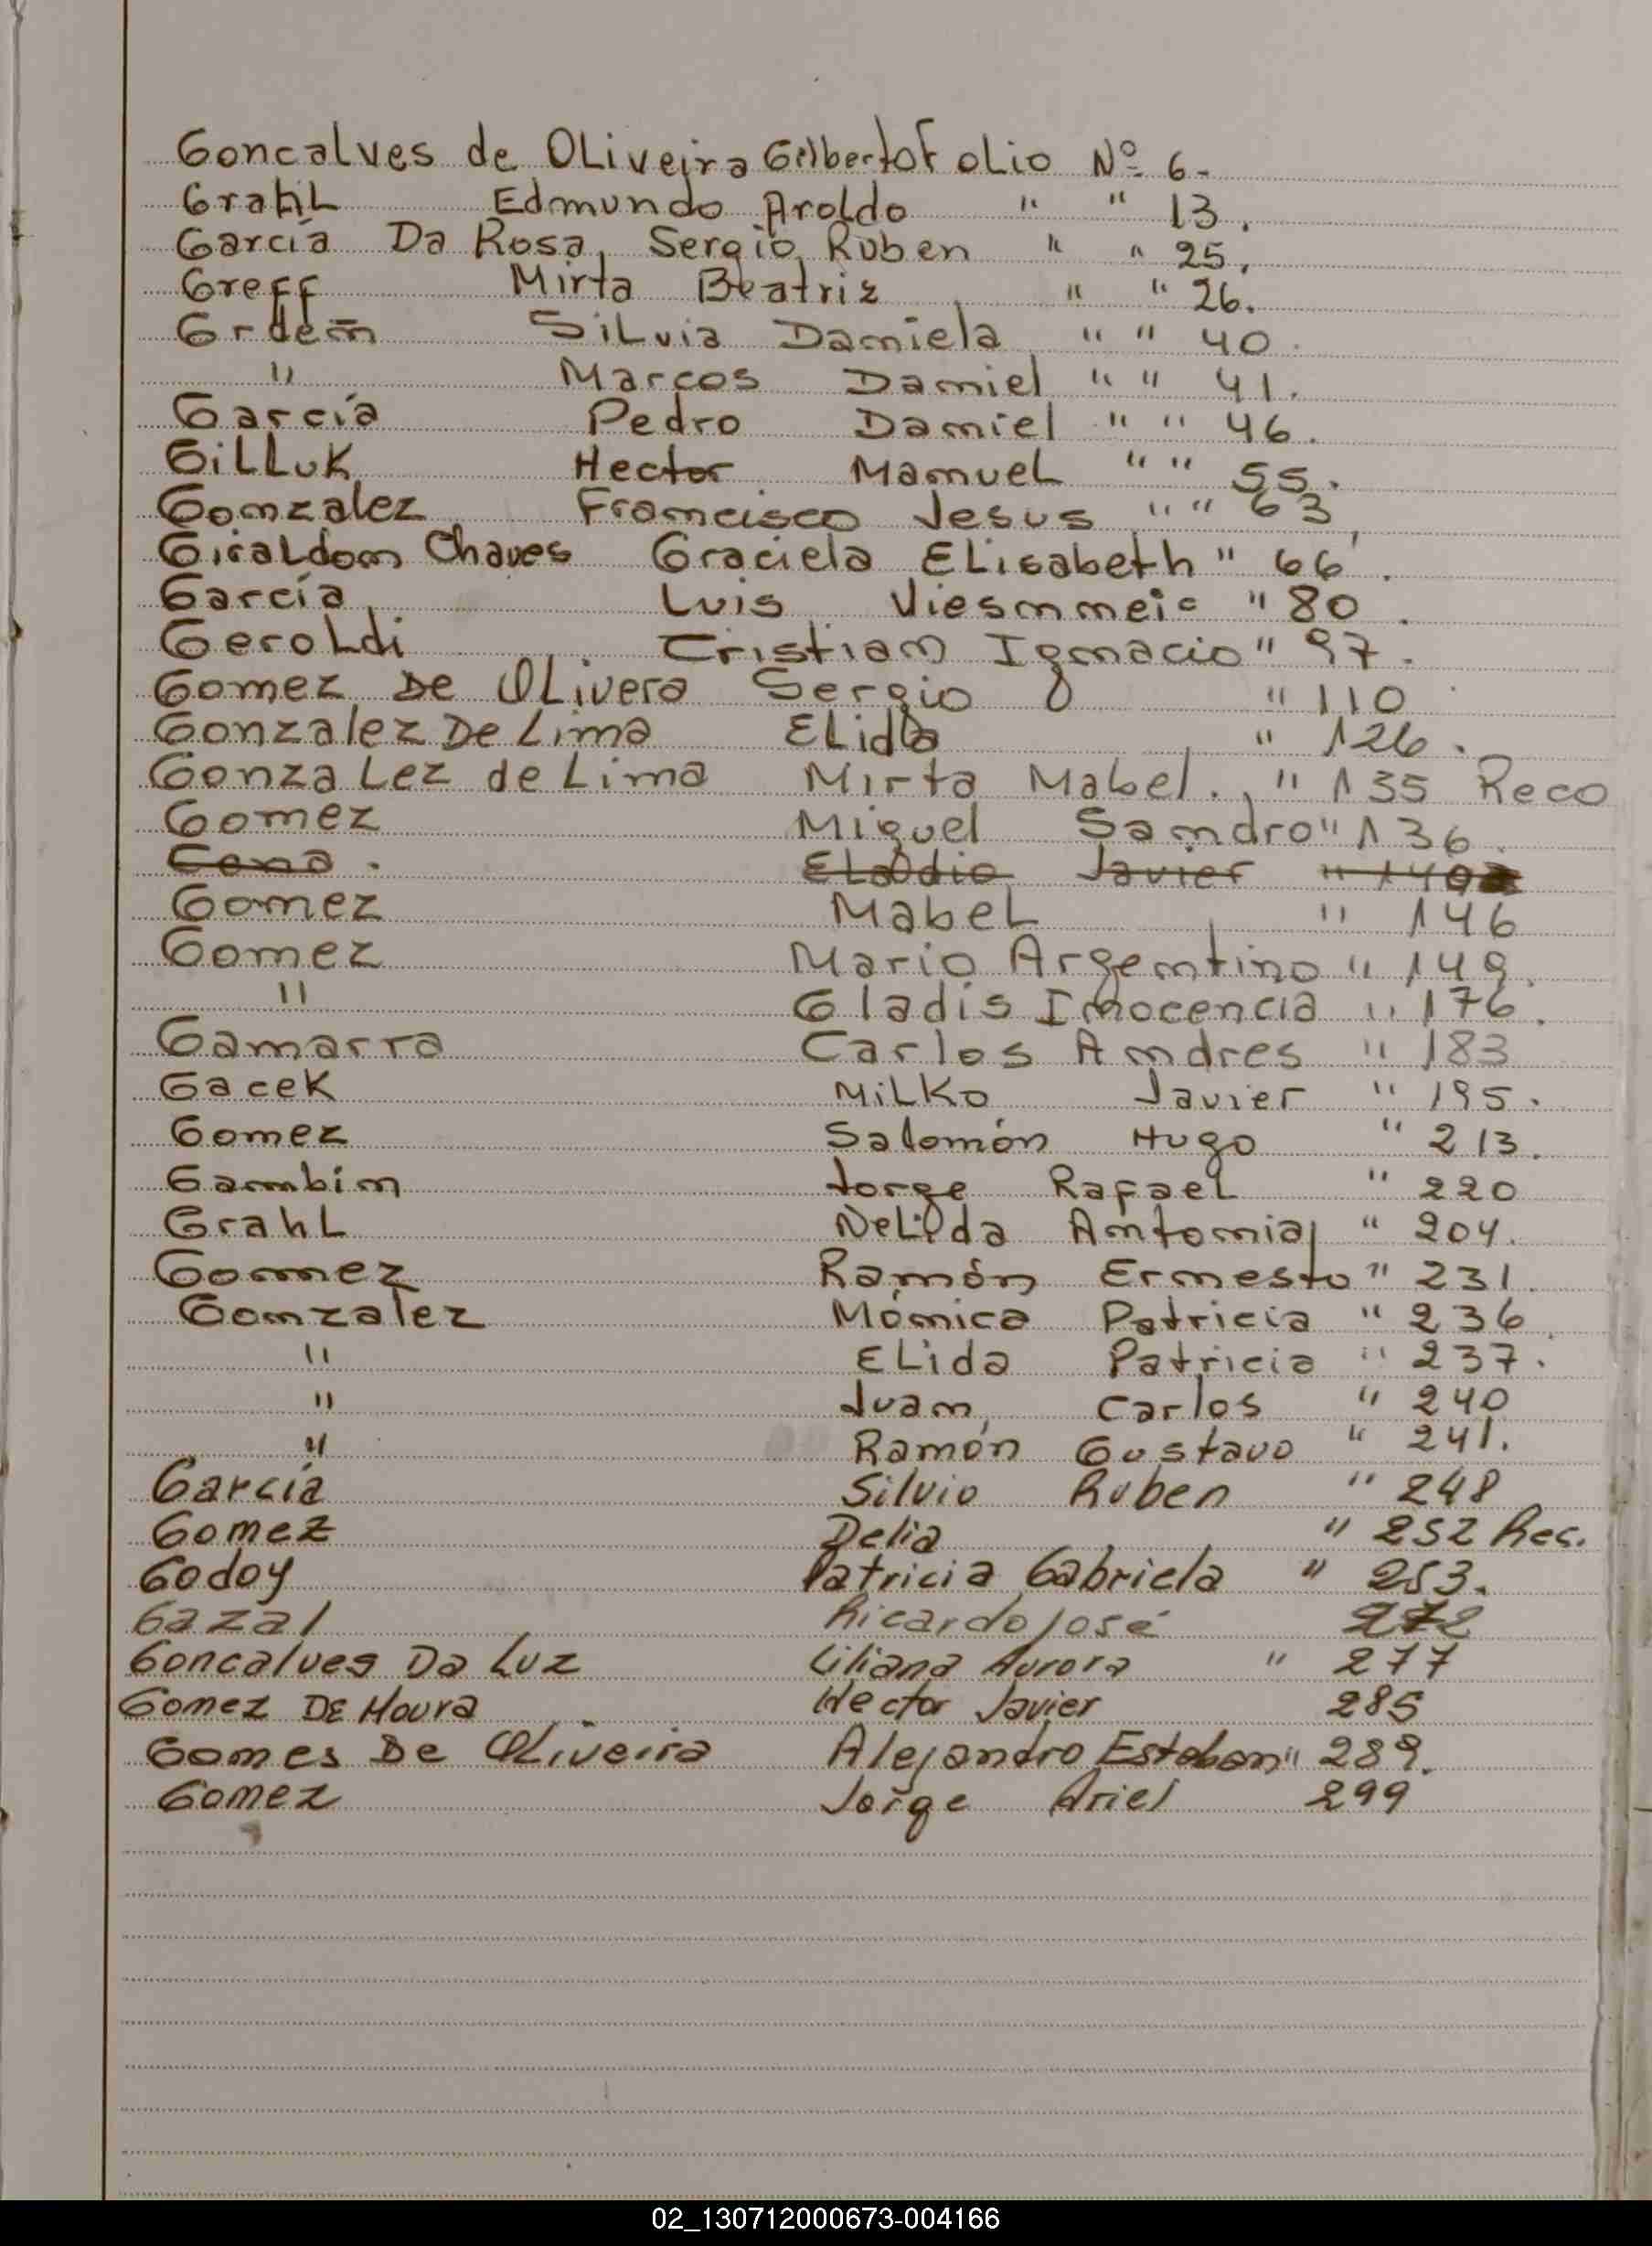 Goncalves de OLiveira Gilberto Folio Nº 6.
GrahL Edmundo Aroldo " " 13.
García Da Rosa, Sergio Ruben " " 25.
Greff Mirta Beatriz " " 26.
Grdem SiLvia Daniela " " 40.
" Marcos Daniel " " 41.
García Pedro Daniel " " 46.
GiLLuk Hector Manuel " " 55.
Gonzalez Francisco Jesus " " 63
Giraldon Chaves Graciela ELisabeth " 66.
García Luis " 80.
GeroLdi Cristian Ignacio " 97.
Gomez De OLivera Sergio " 110
Gonzalez De Lima ELida " 126.
GonzaLez de Lima Mirta Mabel. " 135 Reco
Gomez Miguel Sandro " 136.
Javier "
Gomez MabeL " 146
Gomez Mario Argentino " 149.
" Gladis Inocencia " 176.
Gamarra Carlos Andres " 183
Gacek MiLKo Javier " 195.
Gomez Salomón Hugo " 213.
Gambin Jorge RafaeL " 220
GrahL NeLida Antonia " 204.
Gomez Ramón Ernesto " 231.
Gonzalez Mónica Patricia " 236.
" ELida Patricia " 237.
" Juan Carlos " 240
" Ramón Gustavo " 241.
García Silvio Ruben " 248
Gomez Delia " 252 Rec.
Godoy Patricia Gabriela " 253.
Gazal Ricardo José 272
Goncalves Da Luz Liliana Aurora " 277
Gomez DE Moura Hector Javier 285
Gomes De OLiveira Alejandro Esteban " 289.
Gomez Jorge Ariel 299
02_130712000673-004166